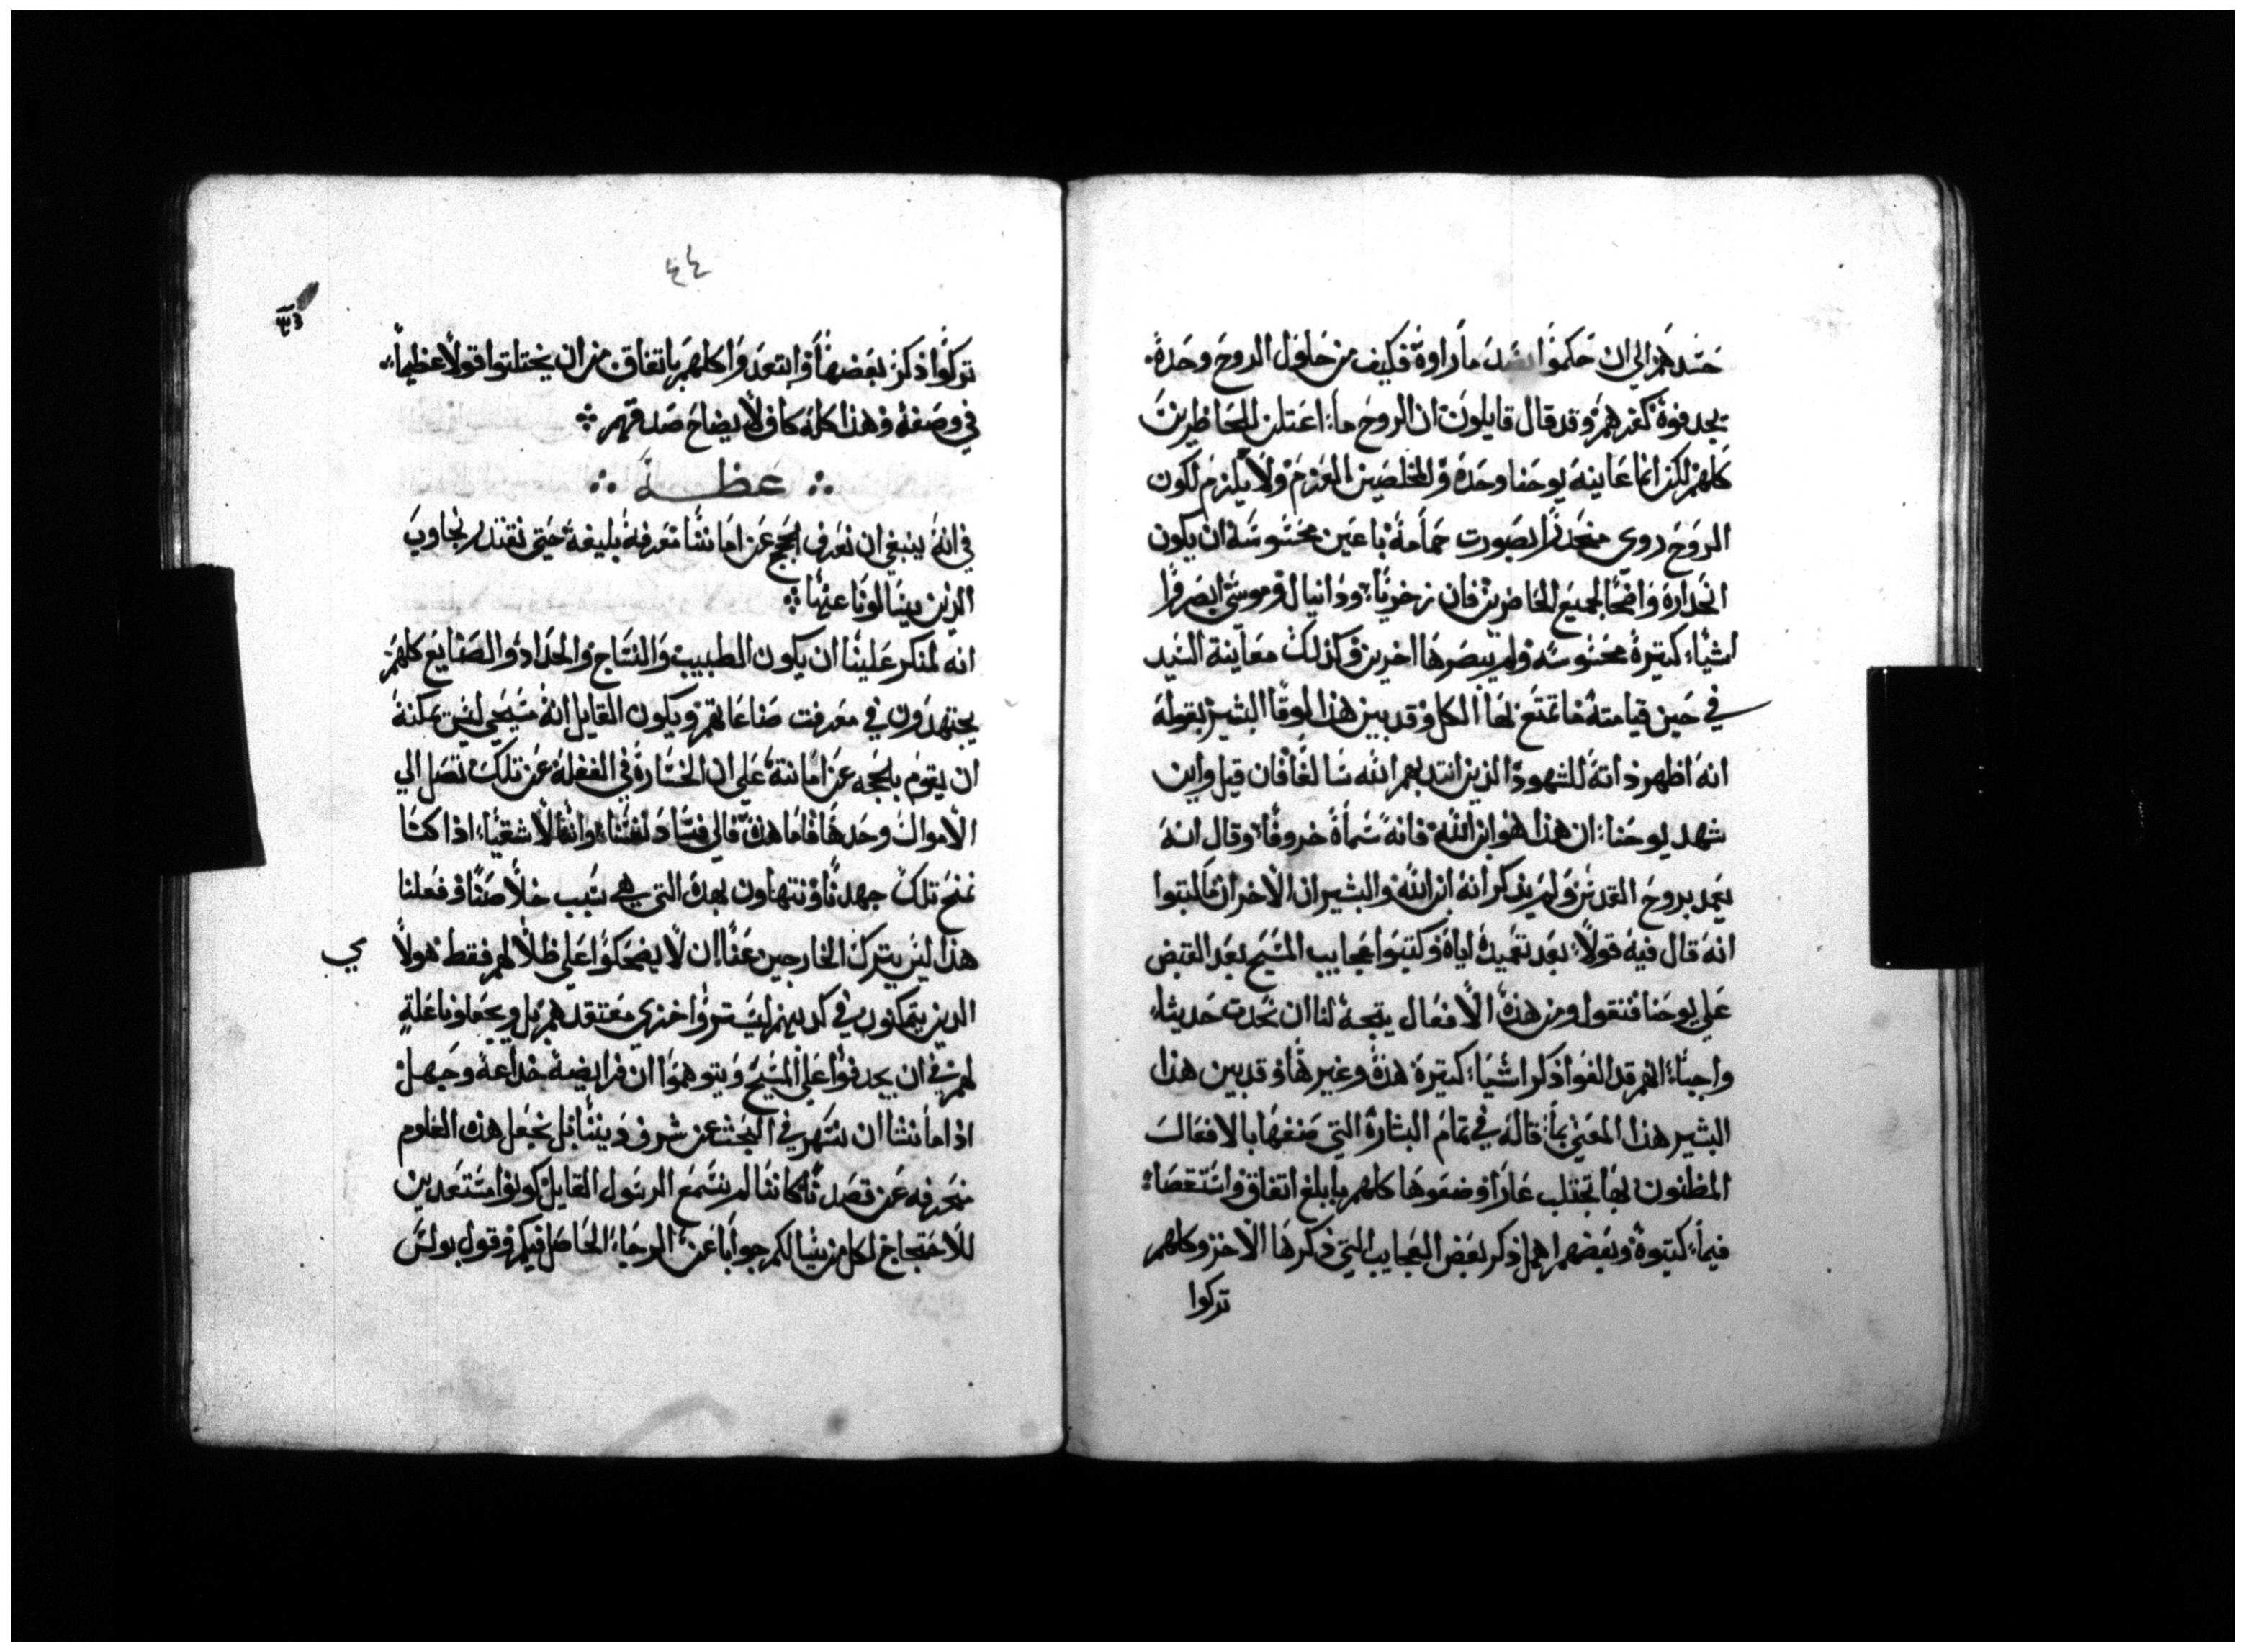 حسدهم الي ان حكموا بضد ما راوة فكيف من حلول الروح وحدة
يجد فوة كفرهم وقد قال قايلون ان الروح ما اعتلن للحاظرين
كلهم لكن انما عاينة يوحنا وحدة والمخلصين العزم ولا يلزم لكون
الروح روي منحدرا بصورت حمامة باعين محسوسة ان يكون
انحدارة واضحا لجميع الحاضرين فان زخريا ودانيال وموسي ابصروا
اشيا كتيرة محسوسة ولم يبصرها اخرين وكذلك معاينة السيد
في حين قيامتة ما تمتع بها الكل وقد بين هذا لوقا البشير بقولة
انة اظهر ذاتة للشهود الذين انتدبهم الله سالفا فان قيل واين
شهد يوحنا ان هذا هو ابن الله فانة سماة خروفا وقال انة
يعمد بروح القدس ولم يذكر انة ابن الله والبشيران الاخران ما كتبوا
انة قال فية قولا بعد تعميدة اياة وكتبوا عجايب المسيح بعد القبض
علي يوحنا فنقول ومن هذة الافعال يتجة لنا ان نحدت حديثا
واجبا انهم قد الغوا ذكر اشيا كتيرة هذة وغيرها وقد بين هذا
البشير هذا المعني بما قالة في تمام البشارة التي صنفها بالافعال
المظنون بها تجتلب عارا وضعوها كلهم بابلغ اتفاق واستقصا
فيما كتبوة وبعضهم اهمل ذكر بعض العجايب التي ذكرها الاخر وكلهم
تركوا
٤٤
تركوا ذكر بعضها وابتعدوا كلهم باتفاق من ان يختلقوا قولا عظيما
في وصفة وهذا كلة كاف لايضاح صدقهم
عظة
في انة ينبغي ان نعرف الحجج عن امانتنا معرفة بليغة حتي نقتدر نجاوب
الذين يسالونا عنها
انه لمنكر علينا ان يكون الطبيب والنساج والحداد والصنايع كلهم
يجتهدون في معرفت صناعاتهم ويكون القايل انة مسيحي ليس يمكنة
ان يقوم بالحجه عن امانتة علي ان الخسارة في الغفلة عن تلك تصل الي
الاموال وحدها فاما هذة فالي فساد نفسنا واننا لاشقيا اذا كنا
نمنح تلك جهدنا ونتهاون بهذة التي هي سبب خلاصنا وفعلنا
هذا ليس يترك الخارجين عنا ان لا يضحكوا علي ظلالهم فقط هولا
الدين يتمكنون في كدبهم ليستروا خزي معتقدهم بل ويجعلونا علة
لهم في ان يجدفوا علي المسيح ويتوهموا ان فرايضة خداعة وجهل
اذ اما نشا ان نسهر في البحث عن شرف ديننا بل نجعل هذه العلوم
منحرفه عن قصدنا كاننا لم نسمع الرسول القايل كونوا مستعدين
للاحتجاج لكل من يسالكم جوابا عن الرجا الحاصل فيكم وقول بولس